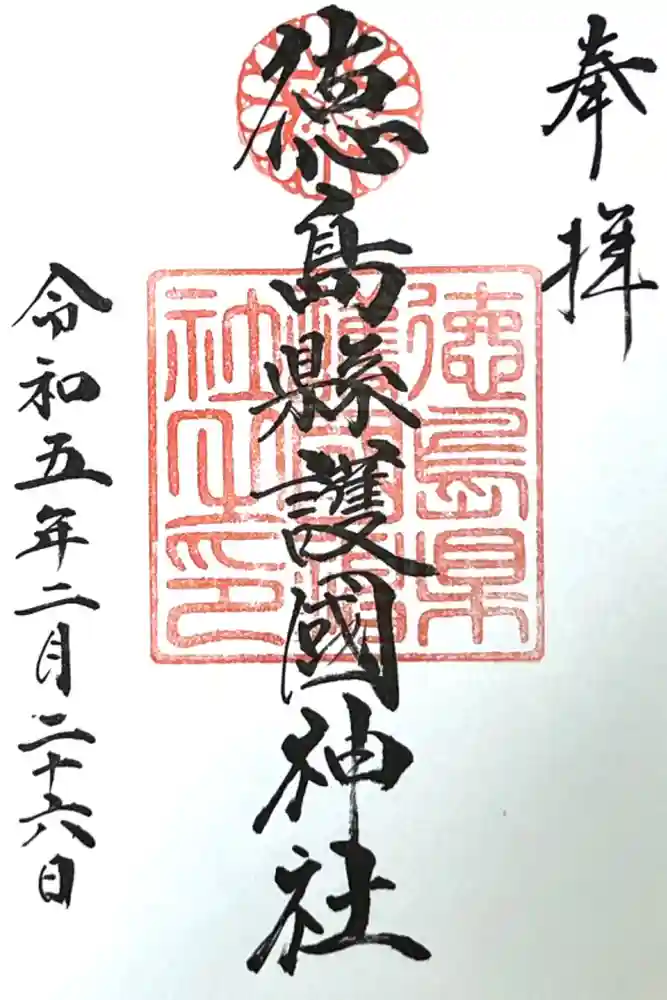 奉拝
徳島縣護國神社
徳島県
護國神
社之印
令和五年二月二十六日